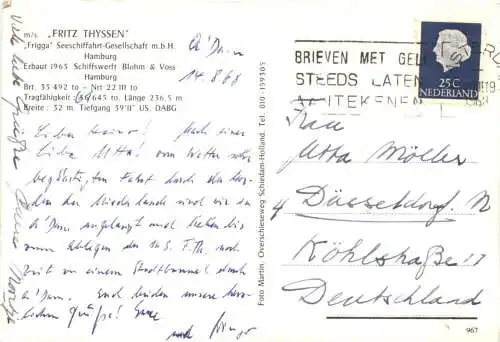 m/s „FRITZ THYSSEN"
„Frigga" Seeschiffahrt-Gesellschaft m.b.H.
Hamburg
Erbaut 1965 Schiffswerft Blohm & Voss
Hamburg
Brt. 35 492 to - Nrt 22 111 to
Tragfähigkeit: 645 to. Länge 236.5 m
Breite: 32 m. Tiefgang 39'11" US. DABG
A'Dam
14.8.68
Liebe Nach einer
Liebe Utta! vom Wetter sehr
begünstigten Fahrt durch den
den der Niederlande sind wir in
A'Dam angelangt und haben bis
zum Ablegen des M.S. F.Th. noch
Zeit zu einem Stadtbummel durch
A'Dam. Euch beiden unsere herz-
lichen Grüße! Eure
und
Viele liebe Grüße
Foto Martin, Overschieseweg Schiedam-Holland. Tel. 010-159305
BRIEVEN MET GELD
STEEDS LATEN
AANTEKENEN
25 C
NEDERLAND
Frau
Utta Möller
4 Düsseldorf N
Köhlstraße 17
Deutschland
967